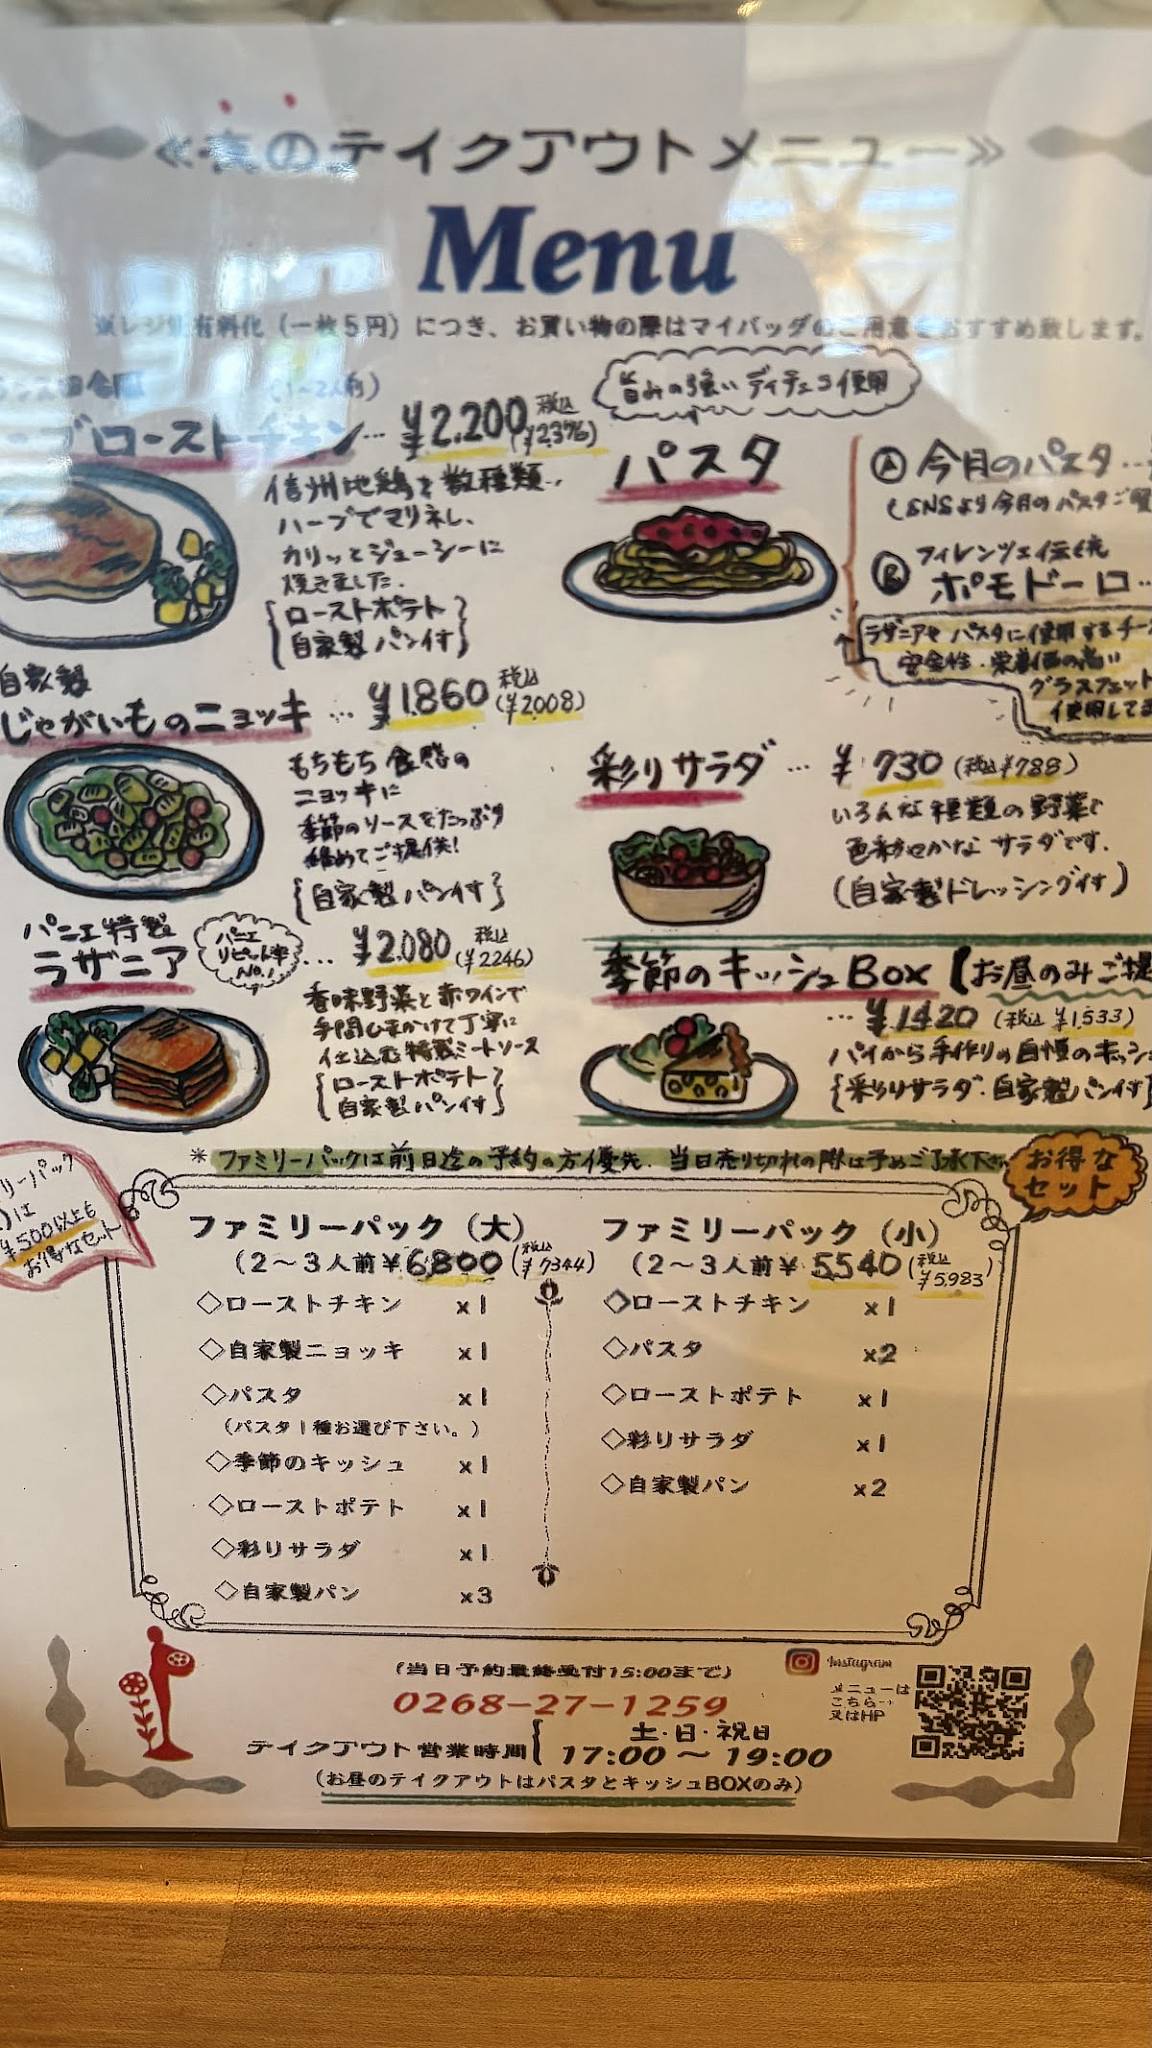 ≪春のテイクアウトメニュー≫
Menu
※レジ袋有料化（一枚5円）につき、お買い物の際はマイバッグのご用意をおすすめ致します。
(1〜2人前)
ローストチキン… ¥2,200 税込(¥2,376)
信州地鶏を数種類…
ハーブでマリネし、
カリッとジューシーに
焼きました.
{ローストポテト
自家製パン付}
自家製
じゃがいものニョッキ … ¥1,860 税込(¥2008)
もちもち食感の
ニョッキに
季節のソースをたっぷり
絡めてご提供!
{自家製パン付}
パニエ特製
ラザニア
パニエ
リピート率
No.1
… ¥2,080 税込(¥2246)
香味野菜と赤ワインで
手間ひまかけて丁寧に
仕込む特製ミートソース
{ローストポテト
自家製パン付}
旨みの強い ディチェコ使用
パスタ
Ⓐ 今月のパスタ…
(SNSより今月のパスタご
Ⓑ フィレンツェ伝統
ポモドーロ…
ラザニアや パスタに使用するチー
安全性・栄養価の高い
グラスフェット
使用して
彩りサラダ … ¥730 (税込¥788)
いろんな種類の野菜で
色鮮やかな サラダです.
(自家製ドレッシング付)
季節のキッシュBOX 【お昼のみご提
… ¥1,420 (税込 ¥1,533)
パイから手作りの自慢のキッシ
{彩りサラダ・自家製パン付
＊ファミリーパックは前日迄の予約の方優先. 当日売り切れの際は予めご了承下さい
リーパック
)は
¥500以上も
お得なセット
お得な
セット
ファミリーパック（大）
（2〜3人前¥6800(税込¥7344)
◇ローストチキン x1
◇自家製ニョッキ x1
◇パスタ x1
（パスタ1種お選び下さい。）
◇季節のキッシュ x1
◇ローストポテト x1
◇彩りサラダ x1
◇自家製パン x3
ファミリーパック（小）
（2〜3人前¥5540(税込¥5,983)
◇ローストチキン x1
◇パスタ x2
◇ローストポテト x1
◇彩りサラダ x1
◇自家製パン x2
（当日予約最終受付15:00まで）
0268-27-1259
テイクアウト営業時間{ 土・日・祝日
17:00〜19:00
（お昼のテイクアウトはパスタとキッシュBOXのみ）
Instagram
メニューは
こちら→
又はHP